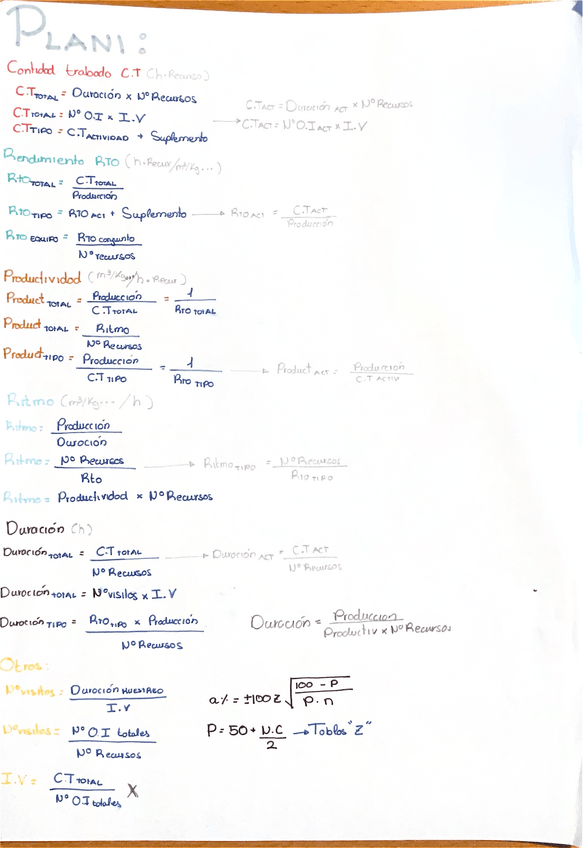 PLANI:
Cantidad trabado C.T (h·Recurso)
C.T TOTAL = Duración x Nº Recursos
C.T TOTAL = Nº O.I x I.V
C.T TIPO = C.T ACTIVIDAD + Suplemento
C.T ACT = Duración ACT x Nº Recursos
→ C.T ACT = Nº O.I ACT x I.V
Rendimiento RTO (h·Recur/m³/Kg...)
Rto TOTAL = C.T TOTAL / Producción
Rto TIPO = RTO ACT + Suplemento → RTO ACT = C.T ACT / Producción
Rto EQUIPO = RTO conjunto / Nº recursos
Productividad (m³/Kg.../h·Recur)
Product TOTAL = Producción / C.T TOTAL = 1 / RTO TOTAL
Product TOTAL = Ritmo / Nº Recursos
Product TIPO = Producción / C.T TIPO = 1 / RTO TIPO → Product ACT = Producción / C.T ACTIV
Ritmo (m³/Kg... /h)
Ritmo = Producción / Duración
Ritmo = Nº Recursos / Rto → Ritmo TIPO = Nº Recursos / RTO TIPO
Ritmo = Productividad x Nº Recursos
Duración (h)
Duración TOTAL = C.T TOTAL / Nº Recursos → Duración ACT = C.T ACT / Nº Recursos
Duración TOTAL = Nº visitas x I.V
Duración TIPO = RTO TIPO x Producción / Nº Recursos
Duración = Produccion / Productiv x Nº Recursos
Otros:
Nº visitas = Duración MUESTREO / I.V
Nº visitas = Nº O.I totales / Nº Recursos
I.V = C.T TOTAL / Nº O.I totales X
a% = ±100 Z √(100 - P / P · n)
P = 50 + N.C / 2 → Tablas "Z"